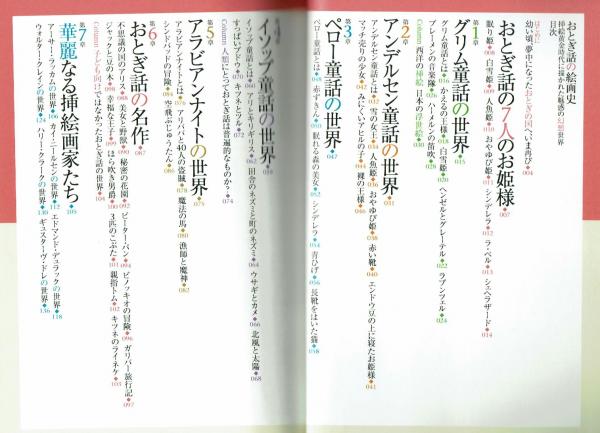 おとぎ話の絵画史
挿絵黄金時代に描かれた魅惑の幻想世界
目次
はじめに
幼い頃、夢中になったおとぎの国へいま再び◆004
おとぎ話の7人のお姫様◆007
眠り姫◆008 白雪姫◆009 人魚姫◆010 おやゆび姫◆011 シンデレラ◆012 ラ・ベル◆013 シェヘラザード◆014
第1章
グリム童話の世界◆015
グリム童話とは◆016 かえるの王様◆018 白雪姫◆020 ヘンゼルとグレーテル◆022 ラプンツェル◆024
ブレーメンの音楽隊◆026 ハーメルンの笛吹◆028
Column 西洋の挿絵と日本の浮世絵◆030
第2章
アンデルセン童話の世界◆031
アンデルセン童話とは◆032 雪の女王◆034 人魚姫◆036 おやゆび姫◆038 赤い靴◆040 エンドウ豆の上に寝たお姫様◆041
マッチ売りの少女◆042 みにくいアヒルの子◆044 裸の王様◆046
第3章
ペロー童話の世界◆047
ペロー童話とは◆048 赤ずきん◆050 眠れる森の美女◆052 シンデレラ◆054 青ひげ◆056 長靴をはいた猫◆058
イソップ童話の世界◆059
イソップ童話とは◆060 アリとキリギリス◆062 田舎のネズミと町のネズミ◆064 ウサギとカメ◆066 北風と太陽◆068
すっぱいブドウ◆070 キツネとツル◆072
Column 人類にとっておとぎ話は普遍的なものか?◆074
第5章
アラビアンナイトの世界◆075
アラビアンナイトとは◆076 アリババと40人の盗賊◆078 魔法の馬◆080 漁師と魔神◆082
シンドバッドの冒険◆084 空飛ぶじゅうたん◆086
第6章
おとぎ話の名作◆087
不思議の国のアリス◆088 美女と野獣◆090 秘密の花園◆092 ピーター・パン◆094 ピノッキオの冒険◆096 ガリバー旅行記◆097
ジャックと豆の木◆098 幸福な王子◆099 ほら吹き男爵◆100 3匹のこぶた◆101 親指トム◆102 キツネのライネケ◆103
Column 子ども向けではなかったおとぎ話の世界◆104
第7章
華麗なる挿絵画家たち◆105
アーサー・ラッカムの世界◆106 カイ・ニールセンの世界◆112 エドマンド・デュラックの世界◆118
ウォルター・クレインの世界◆124 ハリー・クラークの世界◆130 ギュスターヴ・ドレの世界◆136